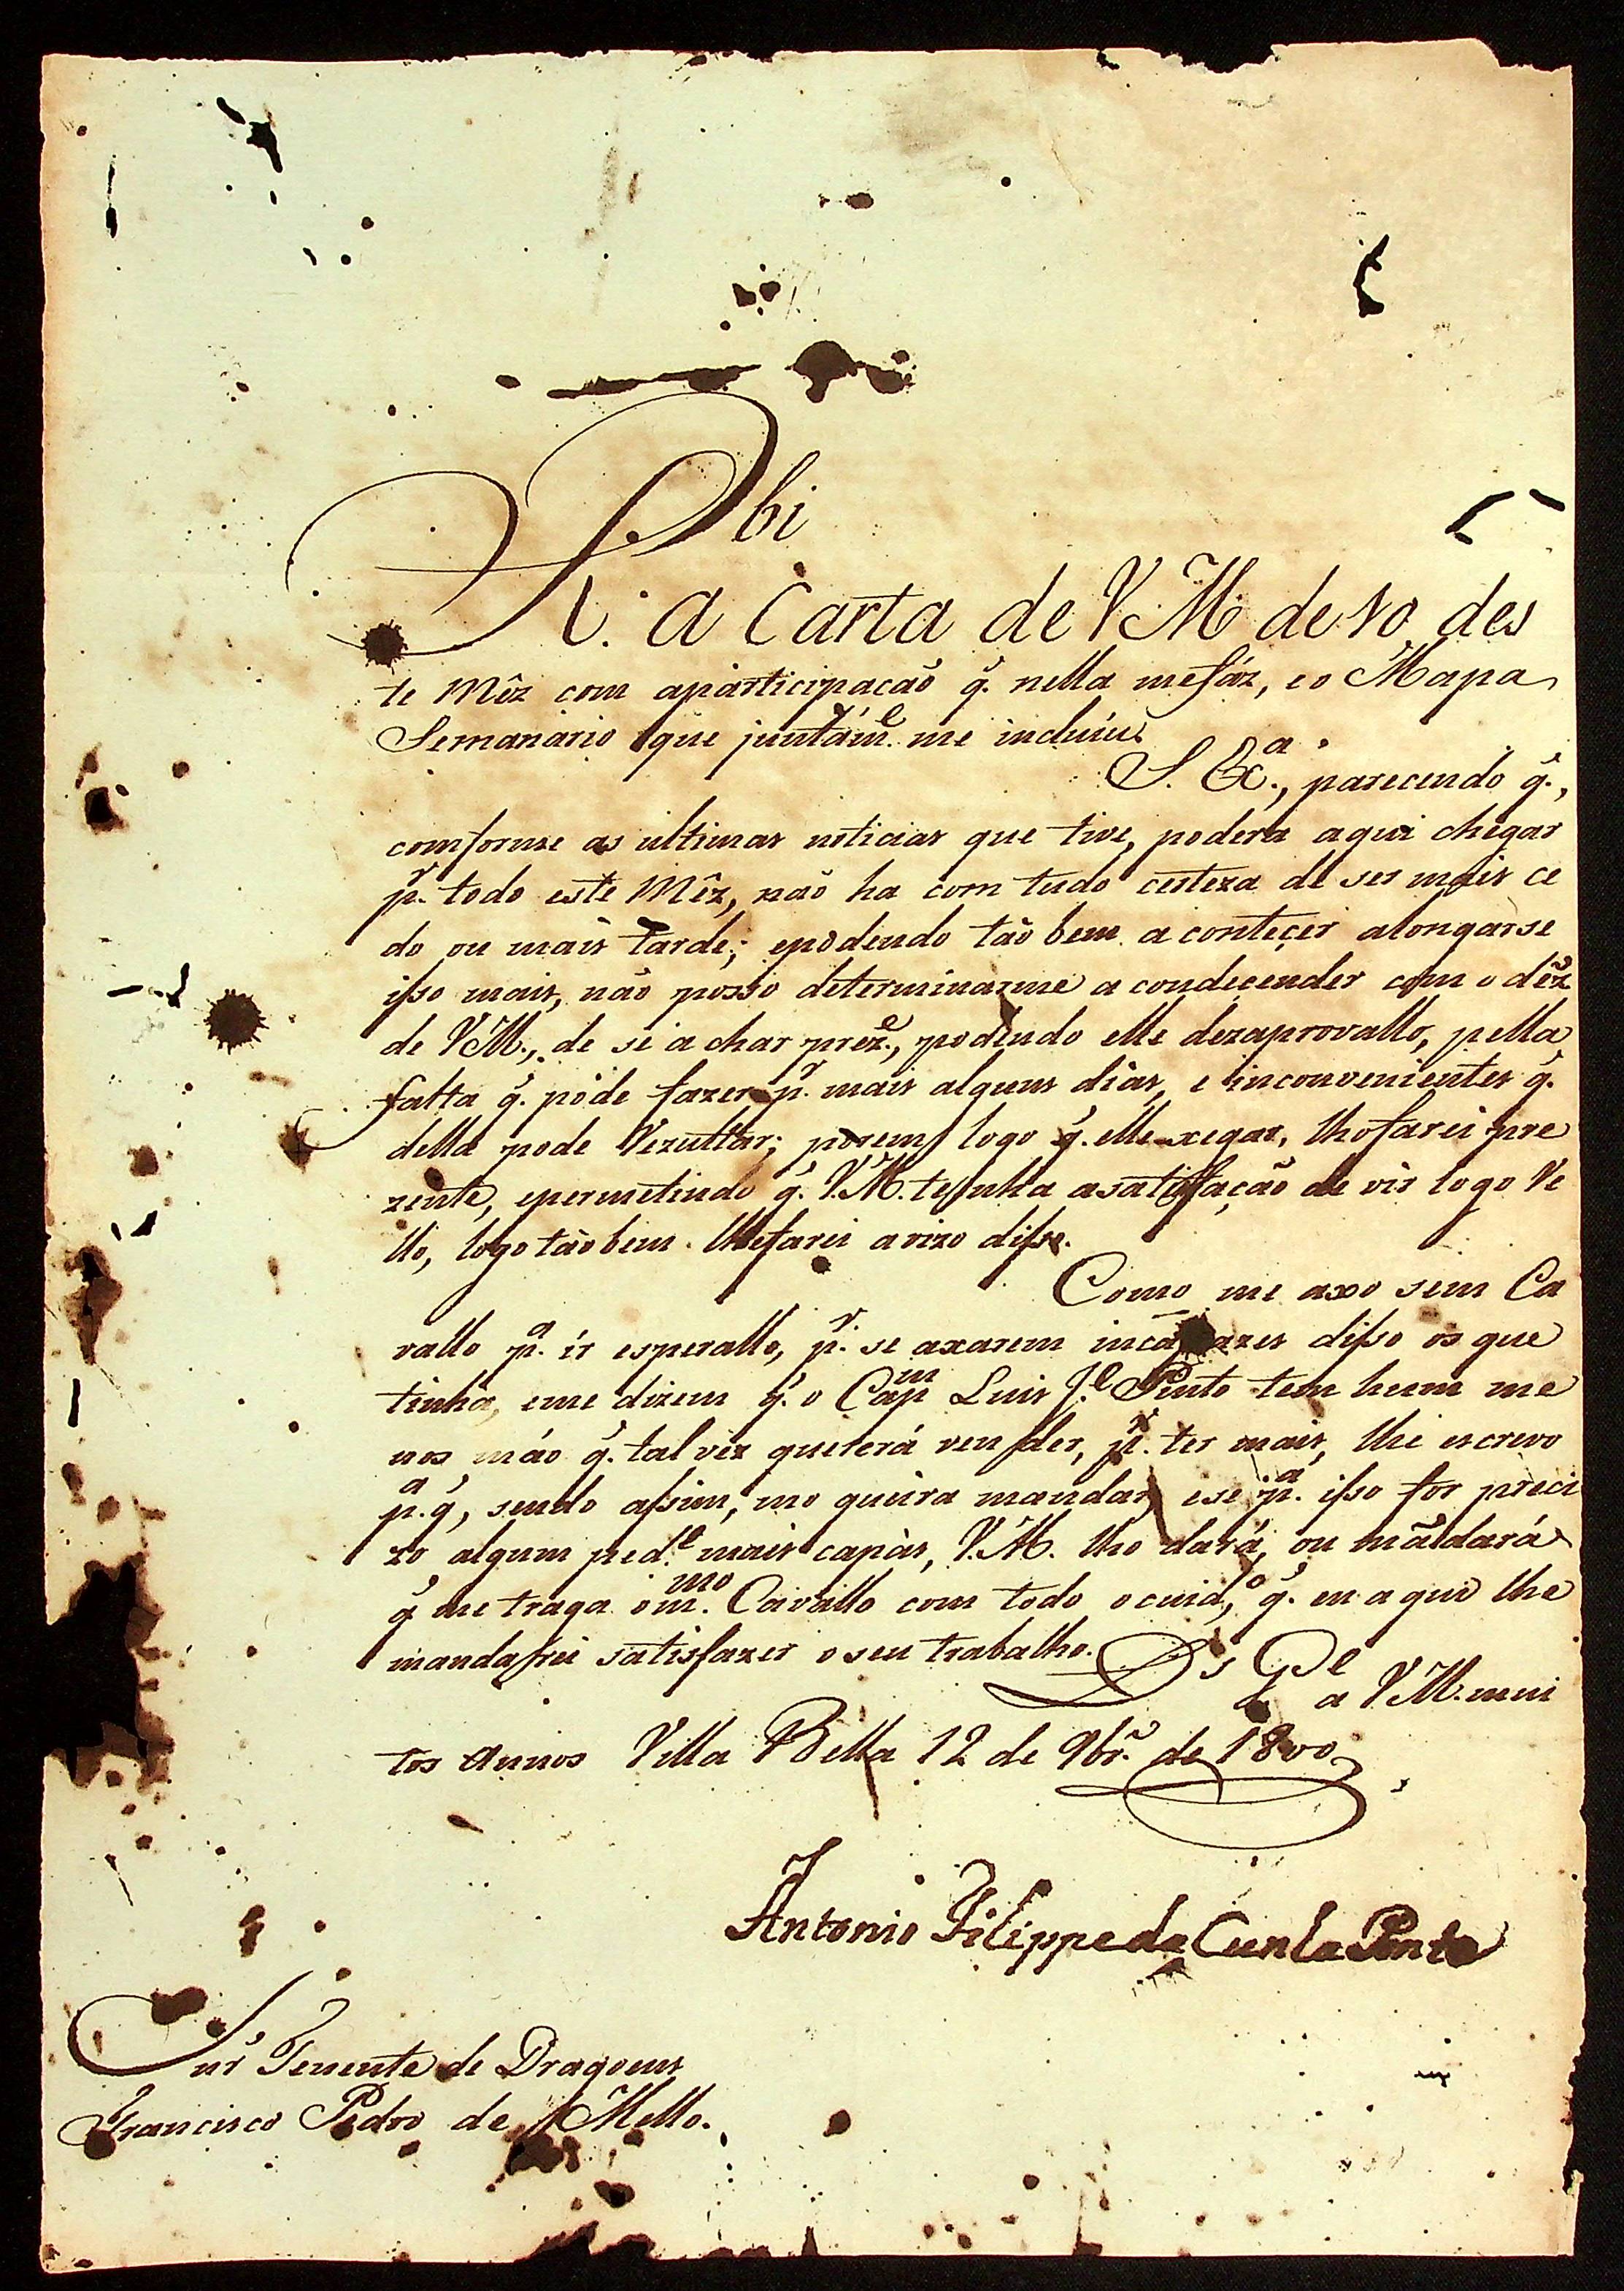 R.bi a Carta de VM de 10 des
te Mêz com aparticipacaõ q̃. nella mefáz, eo Mapa
Semanário que juntam.e me incluiu
S. Ex.a, parecendo q̃.,
comforme as ultimas noticias que tive, poderá aqui chegar
p.r todo este Mêz, naõ ha com tudo certeza de ser mais ce
do ou mais tarde; epodendo taõ bem aconteçer alongarse
ifso mais, naõ posso determinarme a condeçender com o dêz.o
de VM., de se a char prez.e, podendo elle dezaprovallo, pella
falta q̃. póde fazer p.r mais alguns dias, e inconvenientes q̃.
della pode Rezultar; porem logo q̃. elle xegar, lhofarei pre
zente, epermetindo q̃. V.M. tenha asatisfação de vir logo Ve
llo, logo taõbem lhefarei avizo difso.
Como me axo sem Ca
vallo p.a ir esperallo, p.r se axarem incapazes difso os que
tinha, eme dizem q̃. o Cap.m Luis J.e Pinto tem hum me
nos máo q̃. talvez quererá vender, p.r ter mais, lhe escrevo
p.a q̃, sendo afsim, mo queira mandar, ese p.a ifso for preci
zo algum ped.e mais capás, V.M. lho dará, ou mãdará
q̃ me traga om.mo Cavallo com todo ocuid.o, q̃. eu aqui lhe
mandarei satisfazer oseu trabalho. D.s G.e
a VM. mui
tos Annos Villa Bella 12 de 9br.o de 1800
Antonio Filippe da Cunha Ponte
Snr Tenente de Dragoens
Francisco Pedro de Mello.